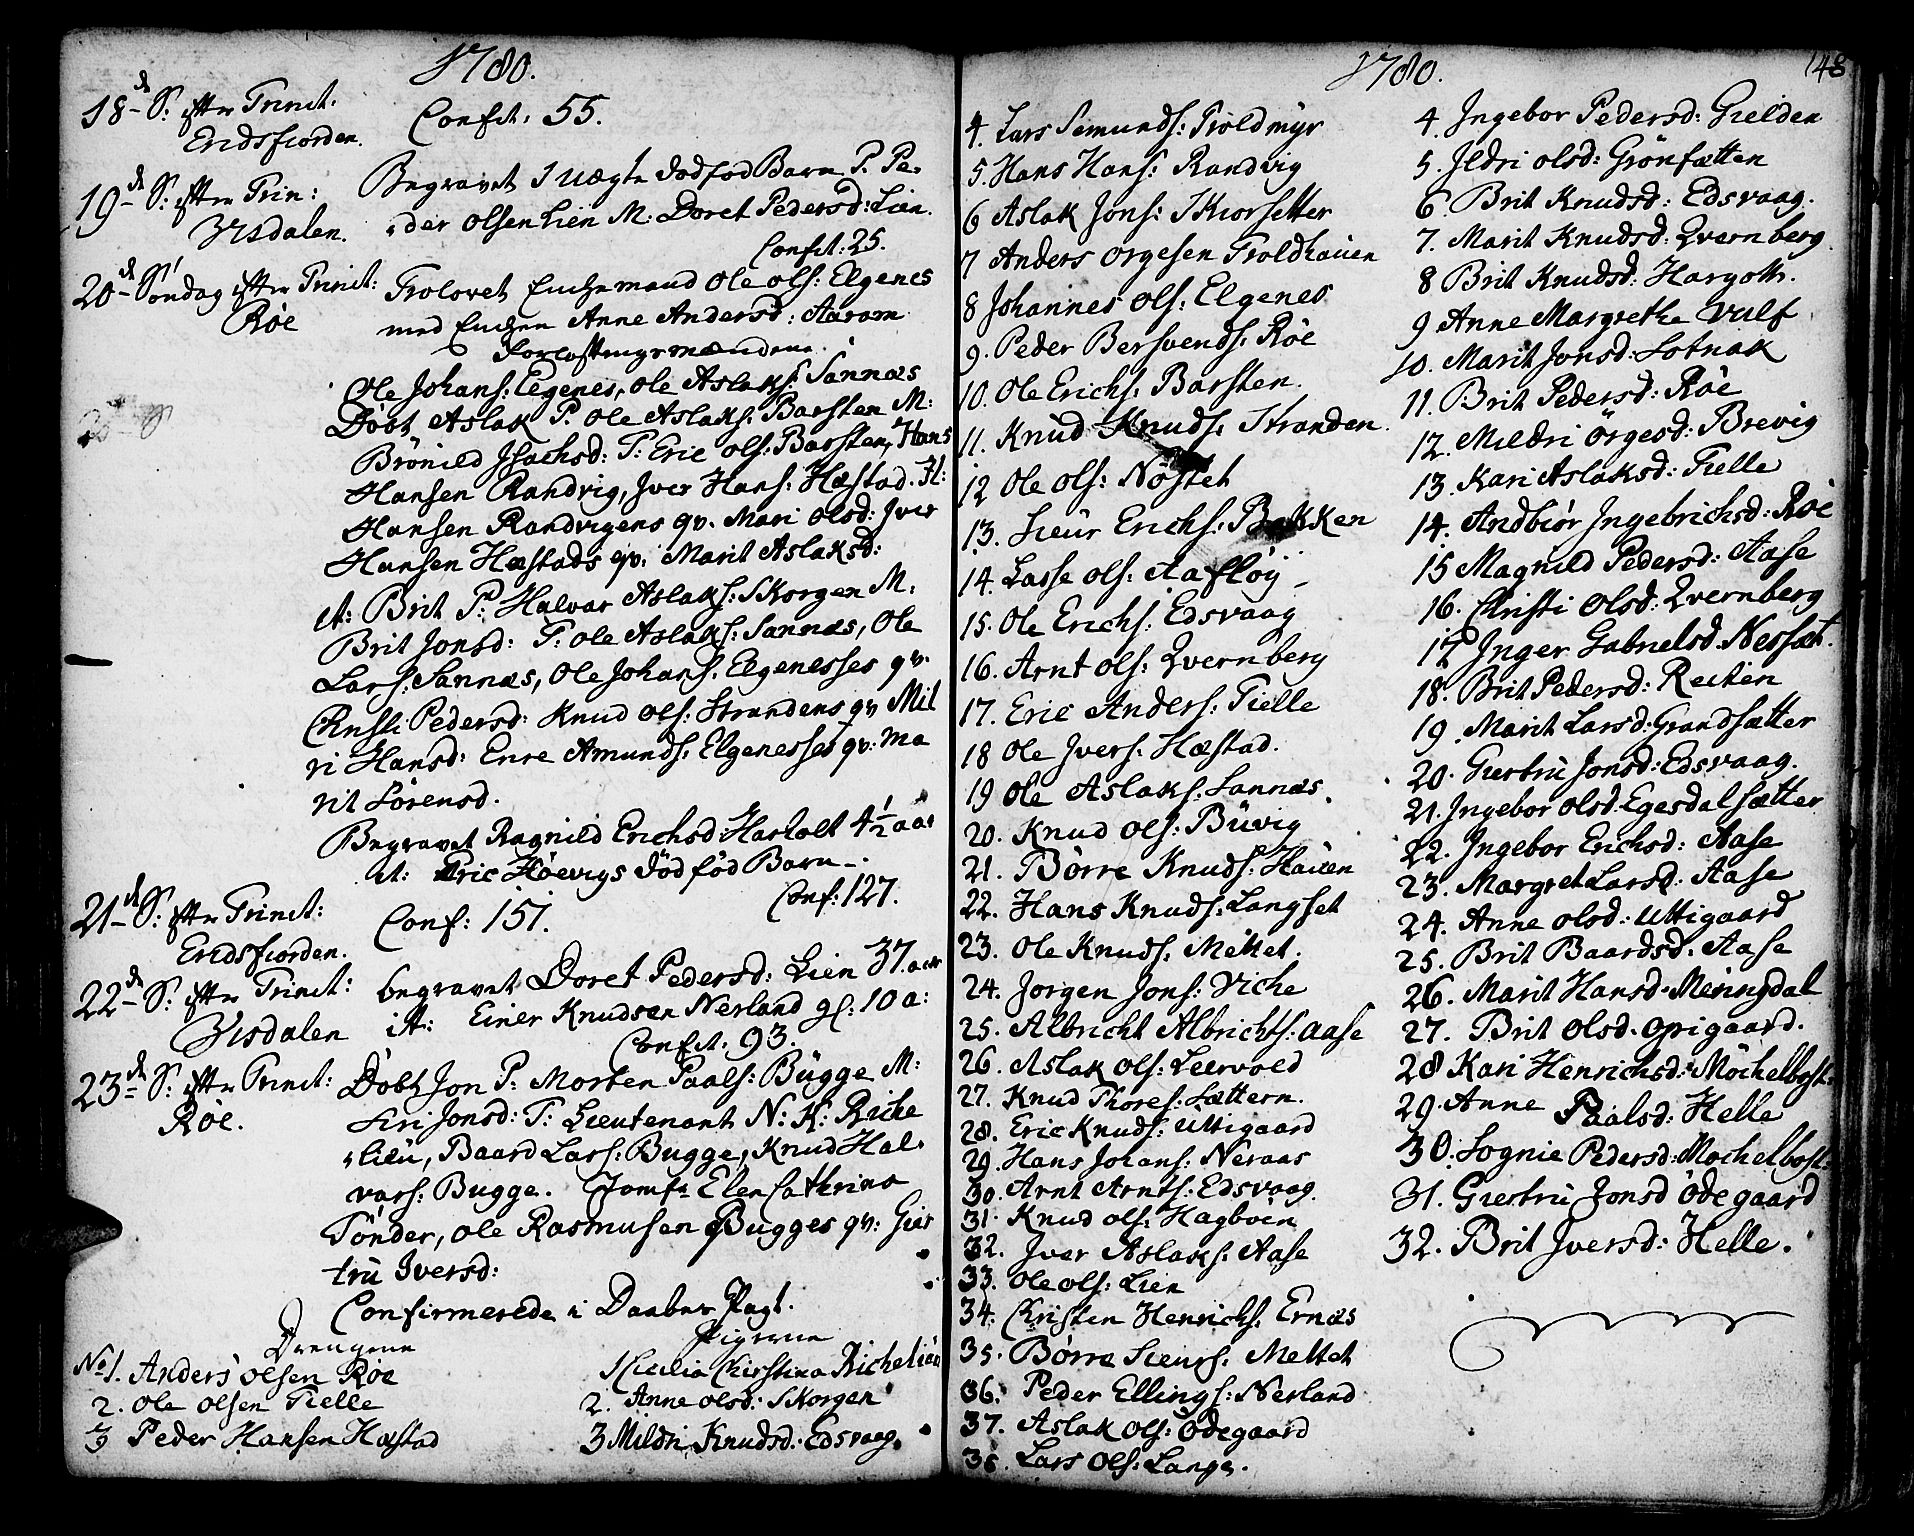 1780.
18de S: efter Trinit: Confit: 55.
Eridsfiorden.
19de S: efter Trin: Begravet 1 uægte dødfød Barn P. Pe-
Visdalen. der Olsen Lien M: Doret Pedersd: Lien.
Confit: 25.
20de Søndag efter Trinit: Trolovet Enchemand Ole Ols: Elgenes
Røe med Enchen Anne Andersd: Aaram
Forlostningsmændene:
Ole Johans: Elgenes, Ole Aslaks: Sannæs
Døbt Aslak P. Ole Aslaks: Barsten M:
Brønild Isachsd: T: Eric Ols: Barsten, Hans
Hansen Randvig, Jver Hans: Hæstad. H:
Hansen Randvigens qv. Mari Olsd: Jver
Hansen Hæstads qv: Marit Aslaksd:
it: Brit P: Halvar Aslaks: Skorgen M:
Brit Jonsd: T: Ole Aslaks: Sannæs, Ole
Lars: Sannæs, Ole Johans: Elgenesses qv.
Christi Pedersd: Knud Ols: Strandens qv Mil
ri Hansd: Enre Amunds: Elgenesses qv: Ma
rit Sørensd.
Begravet Ragnild Erichsd Hasholt 4 1/2 aar
it: Eric Høevigs dødfød Barn -.
Conf: 127.
21de S: efter Trinit: Conf: 151.
Eridsfiorden.
22de S: efter Trinit: begravet Doret Pedersd: Lien 37. aar
Visdalen it: Einer Knudsen Nerland gl: 10 a:
Confit: 93.
23de S: efter Trinit: Døbt Jon P: Morten Paals: Bügge M:
Røe. Siri Jonsd: T: Lieutenant N: K: Riche
lieü, Baard Lars: Bugge, Knud Hal-
vars: Bugge. Jomfr Elen Cathrina
Tönder, Ole Rasmusen Bugges qv: Gier
trü Iversd:
Confirmerede i Danber Pagt.
Drengene Pigerne
No 1. Anders Olsen Røe 1 Cicilia Christina Richelieü
2. Ole Olsen Tielle 2. Anne Olsd: Skorgen
3 Peder Hansen Hæstad 3 Mildri Knudsd: Edsvaag.
1780. 148
4. Lars Semunds: Troldmyr
5. Hans Hans: Randvig
6 Aslak Jons: Skiorsetter
7 Anders Orgesen Troldhauen
8 Johannes Ols: Elgenes
9. Peder Bersvends: Røe
10. Ole Erichs: Barsten.
11. Knud Knuds: Stranden
12 Ole Ols: Nøstet
13. Sieur Erichs: Bakken
14. Lasse Ols: Aafløy
15. Ole Erichs: Edsvaag
16. Arnt Ols: Qvernberg
17. Eric Anders: Tielle
18 Ole Jvers: Hæstad.
19 Ole Aslaks: Sannæs.
20. Knud Ols: Büvig
21. Børre Knuds: Hauen
22. Hans Knuds: Langset
23. Ole Knuds: Mettet.
24. Jorgen Jons: Viche
25. Albricht Albrichts: Aase
26. Aslak Ols: Leervold
27. Knud Thores: Sættern.
28. Eric Knuds: Uttigaard
29. Hans Johans: Neraas
30. Arnt Arnts: Edsvaag.
31. Knud Ols: Hagböen
32. Jver Aslaks: Aase
33. Ole Ols: Lien
34. Christen Henrichs: Ernæs
35. Børre Sieurs: Mettet
36. Peder Ellings: Nerland
37. Aslak Ols: Ödegaard
38. Lars Ols: Lange.
4. Ingebor Pedersd: Gielden
5. Jldri Olsd: Grönsætten
6. Brit Knudsd: Edsvaag.
7. Marit Knudsd: Qvernberg
8 Brit Knudsd: Hargoth.
9 Anne Margrethe Vulf
10. Marit Jonsd: Sotnak
11. Brit Pedersd: Røe
12. Mildri Örgesd: Brevig
13. Kari Aslaksd: Tielle
14. Andbiør Jngebrichsd: Røe
15 Magnild Pedersd: Aase
16. Christi Olsd: Qvernberg
17 Jnger Gabrielsd. Nessæt.
18. Brit Pedersd: Reiten
19. Marit Larsd: Grandsætter
20. Giertrü Jonsd: Edsvaag.
21. Jngebor Olsd. Egesdalsætter
22. Jngebor Erichsd: Aase
23. Margret Larsd: Aase
24. Anne Olsd: Uttigaard
25. Brit Baardsd. Aase
26. Marit Hansd. Meringdal
27. Brit Olsd. Opigaard.
28 Kari Henrichsd: Möchelbost:
29. Anne Paalsd: Helle
30. Sognie Pedersd: Möchelbost:
31. Giertrü Jonsd Ödegaard
32. Brit Jversd: Helle.